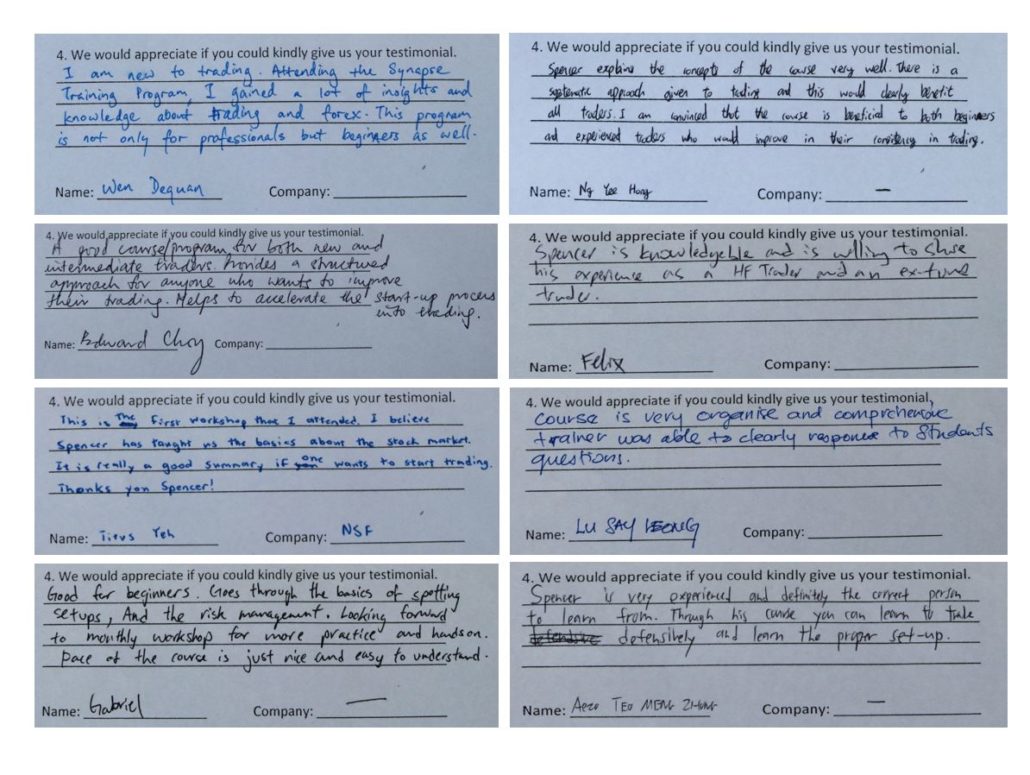 4. We would appreciate if you could kindly give us your testimonial.
I am new to trading. Attending the Synapse
Training Program, I gained a lot of insights and
knowledge about trading and forex. This program
is not only for professionals but beginners as well.
Name: Wen Dequan Company:
4. We would appreciate if you could kindly give us your testimonial.
Spencer explains the concepts of the course very well. There is a
systematic approach given to trading and this would clearly benefit
all traders. I am convinced that the course is beneficial to both beginners
and experienced traders who would improve in their consistency in trading.
Name: Ng Yee Hong Company: —
4. We would appreciate if you could kindly give us your testimonial.
A good course/program for both new and
intermediate traders. Provides a structured
approach for anyone who wants to improve
their trading. Helps to accelerate the start-up process
into trading.
Name: Edward Choy Company:
4. We would appreciate if you could kindly give us your testimonial.
Spencer is knowledgeable and is willing to share
his experience as a HF Trader and an ex-fund
trader.
Name: Felix Company:
4. We would appreciate if you could kindly give us your testimonial.
This is the first workshop that I attended. I believe
Spencer has taught us the basics about the stock market.
It is really a good summary if one wants to start trading.
Thanks you Spencer!
Name: Titus Yeh Company: NSF
4. We would appreciate if you could kindly give us your testimonial.
Course is very organise and comprehensive
trainer was able to clearly response to students
questions.
Name: LU SAY LEONG Company:
4. We would appreciate if you could kindly give us your testimonial.
Good for beginners. Goes through the basics of spotting
setups, And the risk management. Looking forward
to monthly workshop for more practice and handson.
Pace of the course is just nice and easy to understand.
Name: Gabriel Company: —
4. We would appreciate if you could kindly give us your testimonial.
Spencer is very experienced and definitely the correct person
to learn from. Through his course you can learn to trade
defensive defensively and learn the proper set-up.
Name: TEO MENG ZHONG Company: —